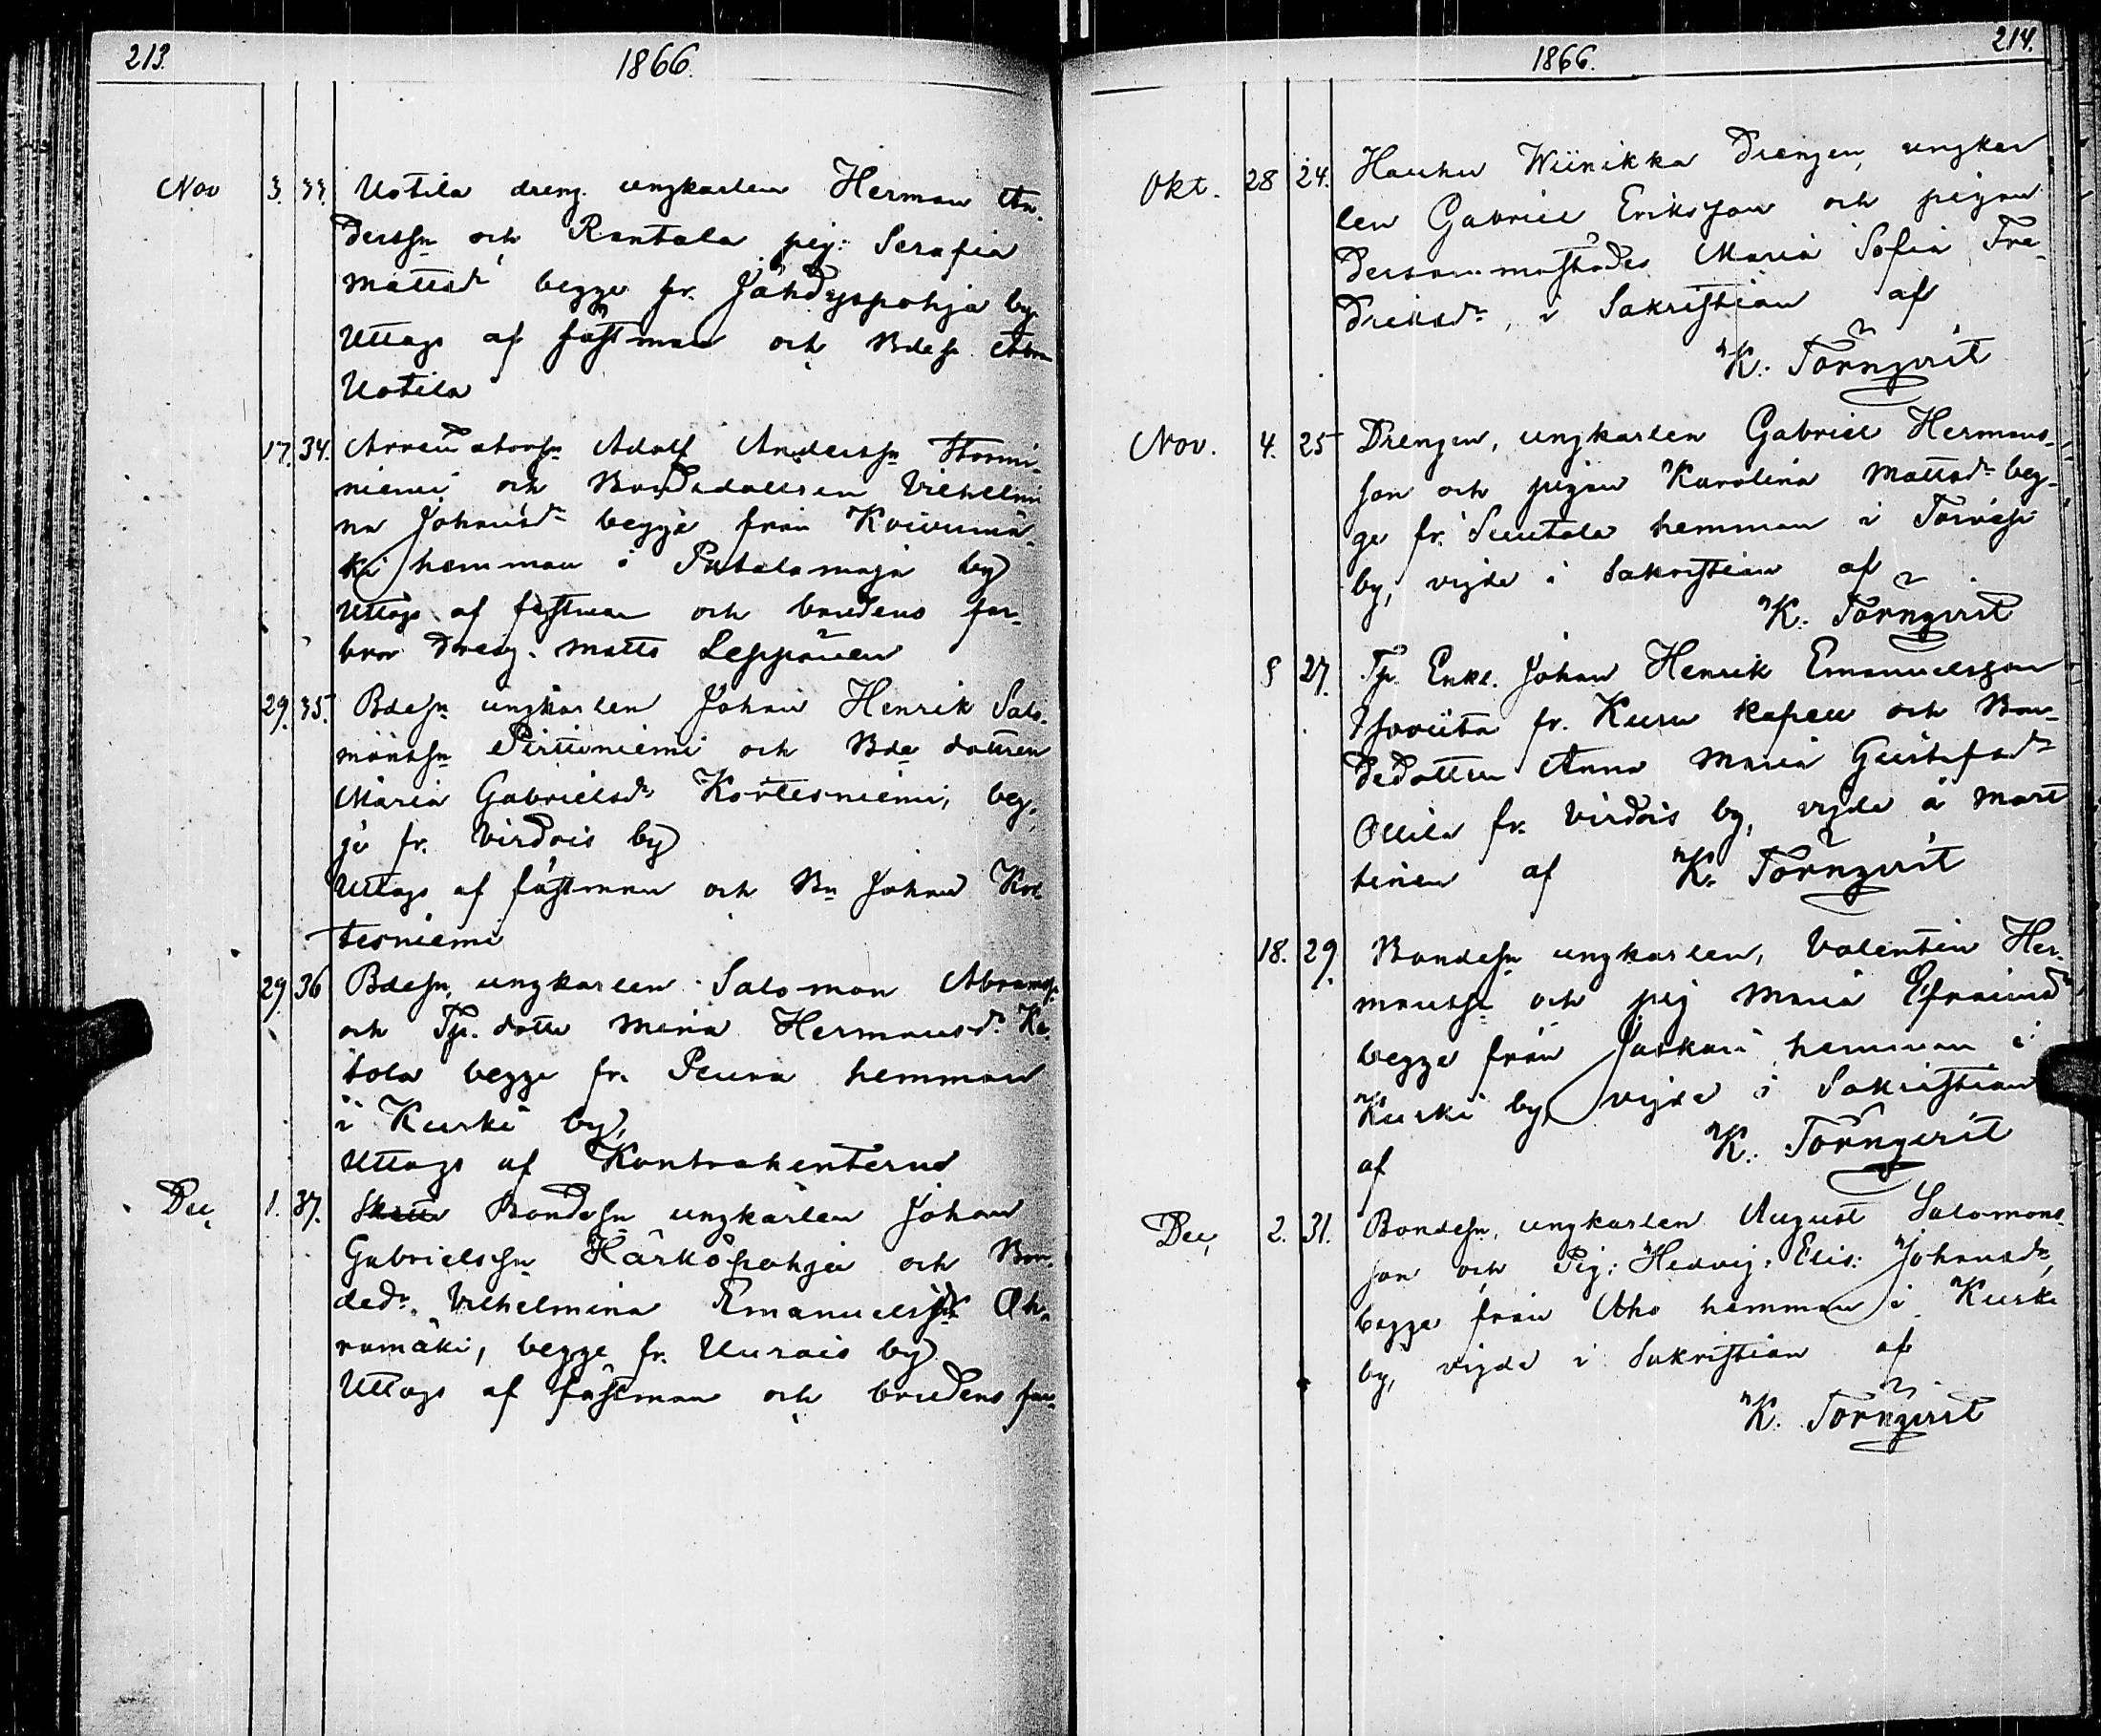 213.
1866.
Nov 3. 33. Uotila dreng. ungkarlen Herman An-
derssn och Rantala pig: Serafia
Mattsdr begge fr. Jähdyspohja by
Uttogs af fästman och Bdesn Abra
Uotila
17. 34. Arrendatorsn Adolf Anderssn
niemi och Bondedottren Vilhelmi
na Johansdr begge från Koivumä-
ki hemman i Patalamaja by
Uttogs af fästman och brudens far-
bror Dreng. Matts Leppänen
29. 35. Bdesn ungkarlen Johan Henrik Salo-
monssn Pirttiniemi och Bde dottren
Maria Gabrielsdr Kortesniemi, beg-
ge fr. Virdois by
Uttogs af fästman och Bn Johan Kor-
tesniemi
29. 36 Bdesn, ungkarlen Salomon Abramss.
och Tp. dottr Maria Hermansdr
tola begge fr. Peura hemman
i Kurki by,
Uttogs af Kontrahenterne
Dec, 1. 37. Bondesn ungkarlen Johan
Gabrielssn Härköpohja och Bon-
dedr. Vilhelmina Emanuelsdr Oh-
ramäki, begge fr. Uurais by
Uttogs af fästman och brudens far
214.
1866.
Okt. 28 24. Hauhu Wiinikka Drengen, ungkar
len Gabriel Eriksson och pigan
Maria Sofia Fre-
driksdr, i Sakristian af
K. Törnqvist
Nov. 4. 25 Drengen, ungkarlen Gabriel Hermans-
son och pigan Karolina Mattsdr beg-
ge fr. Suutala hemman i Toivesi
by, vigde i Sakristian af
K. Törnqvist
27. Tp. Enkl. Johan Henrik Emanuelsson
fr. Kuru kapell och Bon-
dedottren Anna Maria Gustafsdr
Ollila fr. Virdois by, vigde å Mart
tinen af K. Törnqvist
18. 29. Bondesn ungkarlen, Valentin Her-
manssn och pig Maria Efraimsdr
begge från Jaskari hemman i
Kurki by, vigde i Sakristian
af K. Törnqvist
Dec, 2. 31. Bondesn, ungkarlen August Salomons-
son och Pig: Hedvig. Elis: Johansdr,
begge från Aho hemman i Kurki
by, vigde i Sakristian af
K. Törnqvist